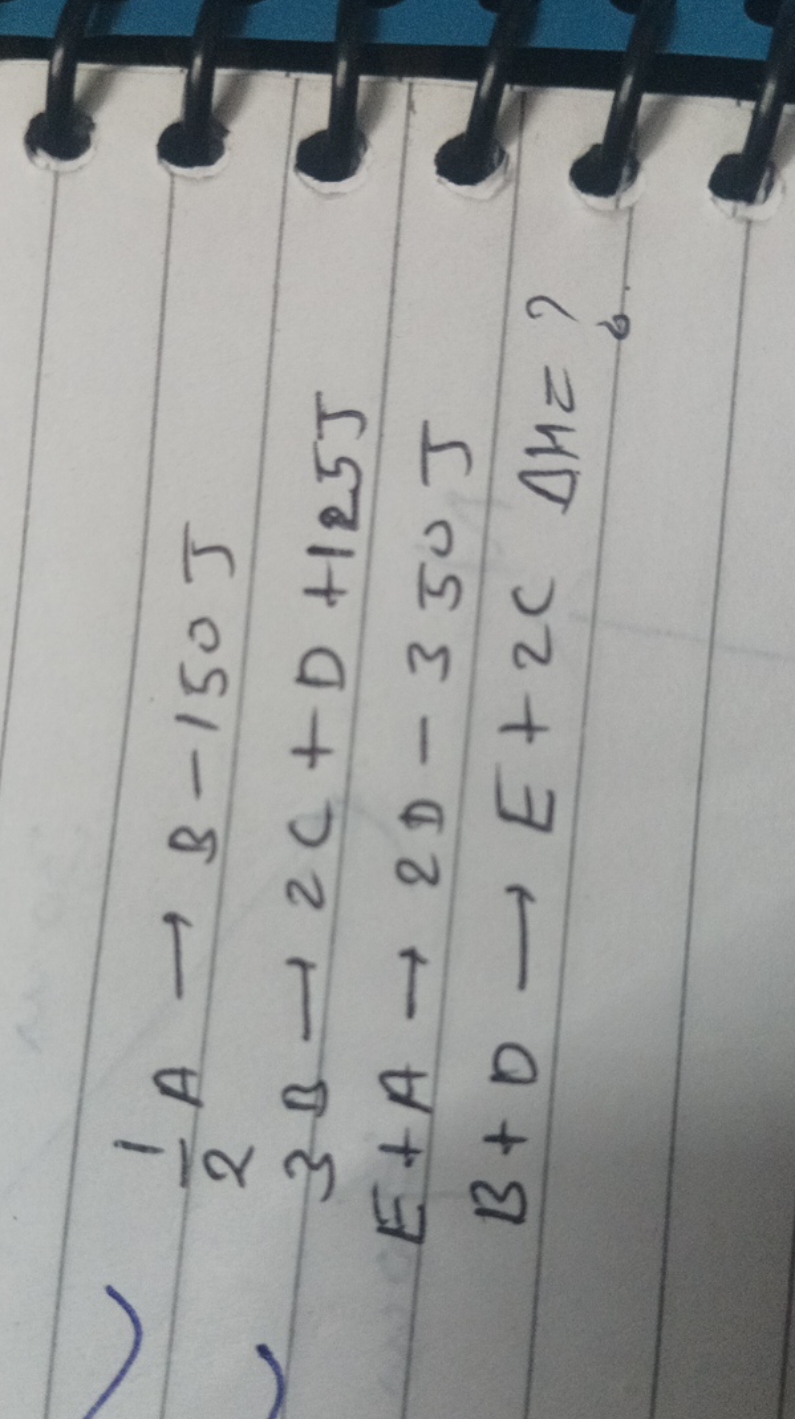 1/2 A → B - 150 J
3B → 2C + D + 125J
E + A → 2D - 350 J
B + D → E + 2C ΔH = ?